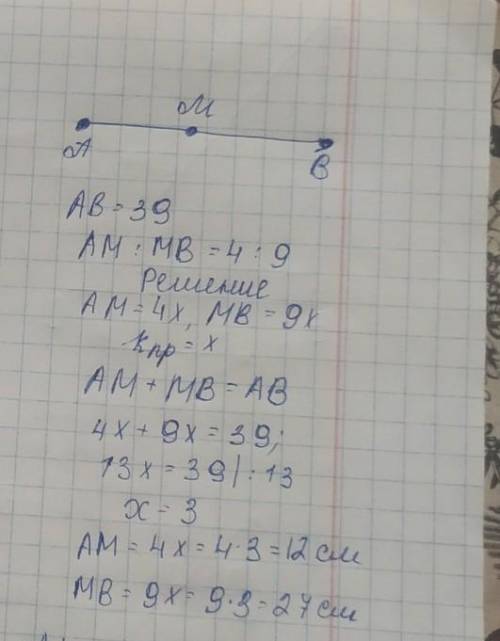 М
А
В
AB = 39
AM : MB = 4 : 9
Решение
AM = 4x, MB = 9x
kпр = x
AM + MB = AB
4x + 9x = 39;
13x = 39 | : 13
x = 3
AM = 4x = 4·3 = 12 см
MB = 9x = 9·3 = 27 см